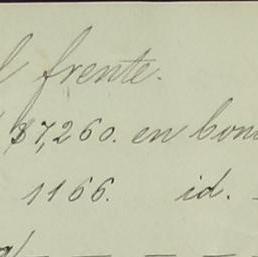 l frente.
$7,260. en bon
1166. id.